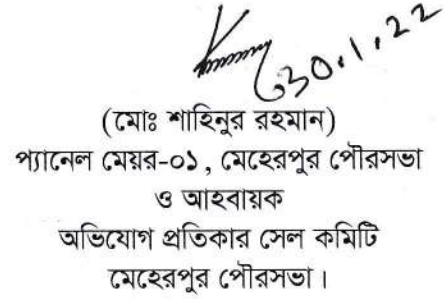 30.1.22
(মোঃ শাহিনুর রহমান)
প্যানেল মেয়র-০১, মেহেরপুর পৌরসভা
ও আহবায়ক
অভিযোগ প্রতিকার সেল কমিটি
মেহেরপুর পৌরসভা।